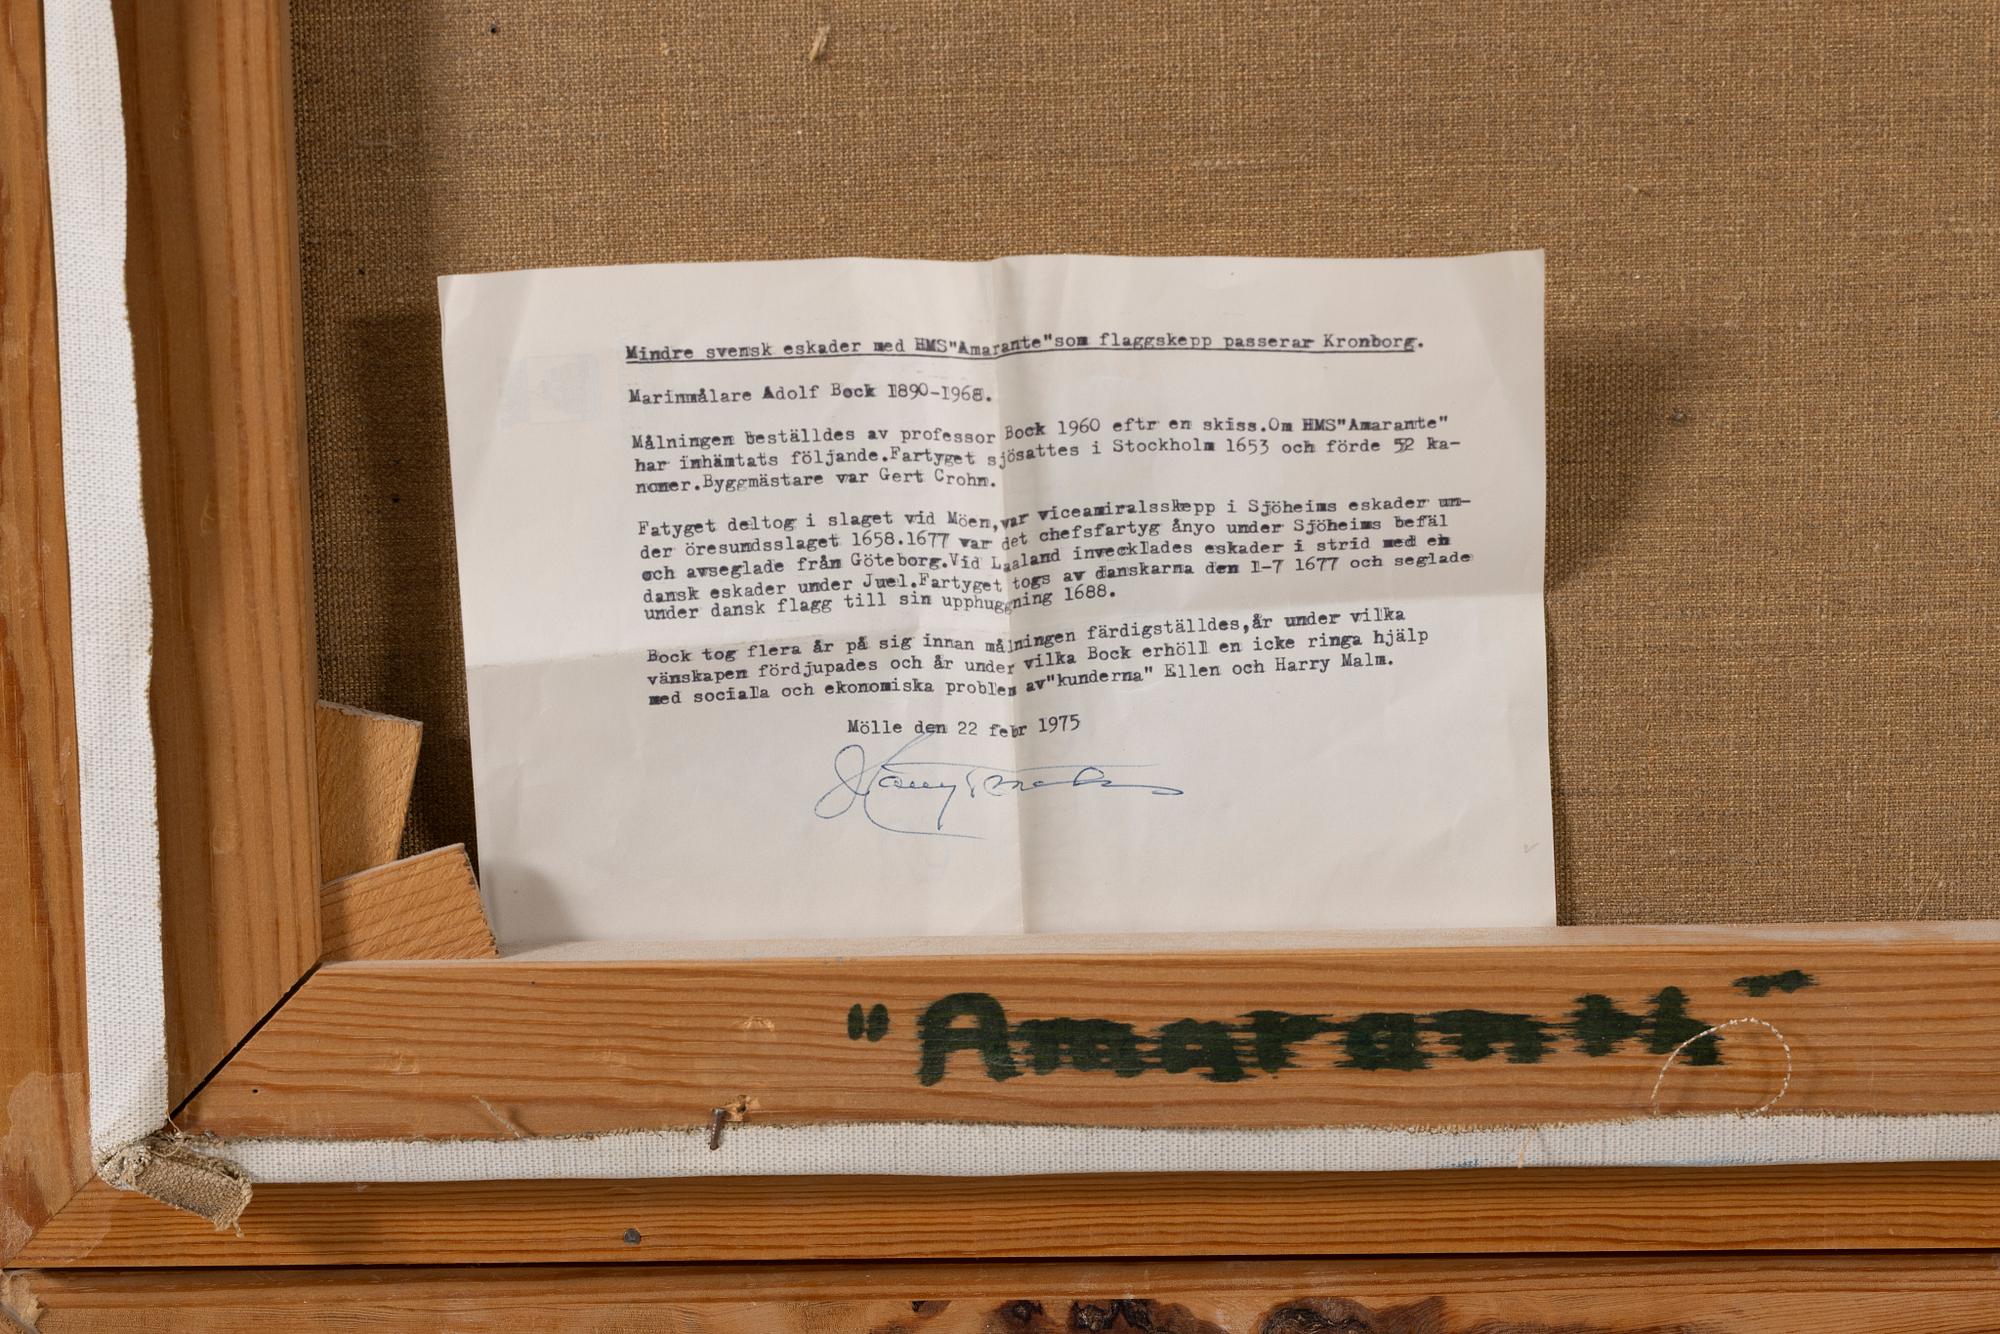 Mindre svensk eskader med HMS"Amarante"som flaggskepp passerar Kronborg.
Marinmålare Adolf Bock 1890-1968.
Målningen beställdes av professor Bock 1960 eftr en skiss.Om HMS"Amarante"
har inhämtats följande.Fartyget sjösattes i Stockholm 1653 och förde 52 ka-
noner.Byggmästare var Gert Crohn.
Fatyget deltog i slaget vid Möen,var viceamiralsskepp i Sjöheims eskader un-
der öresundsslaget 1658.1677 var det chefsfartyg ånyo under Sjöheims befäl
och avseglade från Göteborg.Vid Laaland invecklades eskader i strid med en
dansk eskader under Juel.Fartyget togs av danskarna den 1-7 1677 och seglade
under dansk flagg till sin upphuggning 1688.
Bock tog flera år på sig innan målningen färdigställdes,år under vilka
vänskapen fördjupades och år under vilka Bock erhöll en icke ringa hjälp
med sociala och ekonomiska problem av"kunderna" Ellen och Harry Malm.
Mölle den 22 febr 1975
Harry Malm
"Amarant"